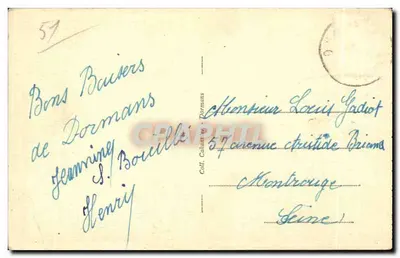 51
Bons Baisers
de Dormans
Jeannine
S. Bouille
Henry
Monsieur Louis Gadiot
57 avenue Aristide Briand
Montrouge
Seine